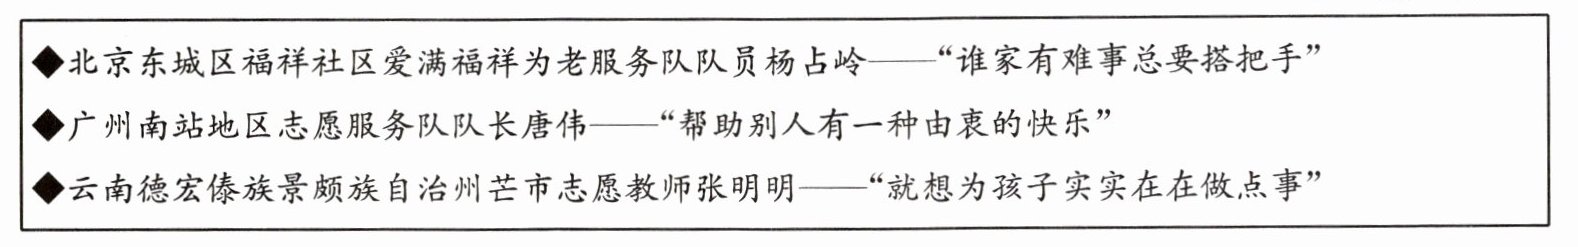 ◆北京东城区福祥社区爱满福祥为老服务队队员杨占岭——“谁家有难事总要搭把手”
◆广州南站地区志愿服务队队长唐伟——“帮助别人有一种由衷的快乐”
◆云南德宏傣族景颇族自治州芒市志愿教师张明明——“就想为孩子实实在在做点事”